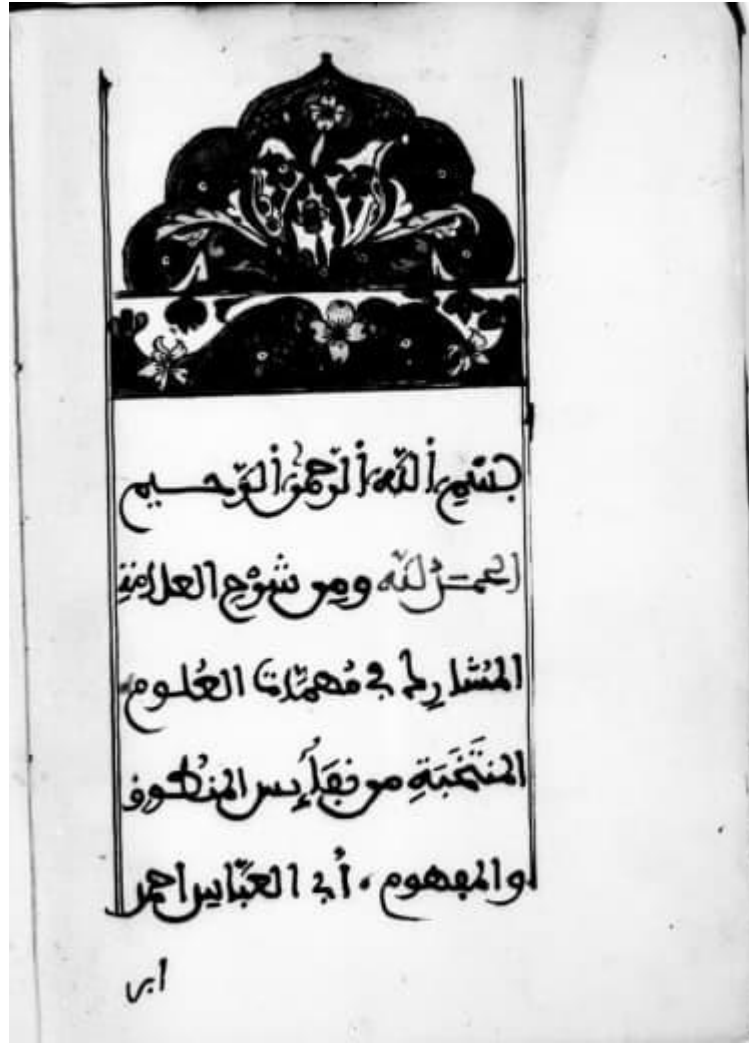 بِسْمِ اللَّهِ الرَّحْمٰنِ الرَّحِيم
الحمد لله ومن شرح العلامة
المُشارِك في مُهمَّات العُلوم
المنتَخَبَةِ من نفائس المنطوق
والمفهوم، أبي العبَّاس احمد
ابن